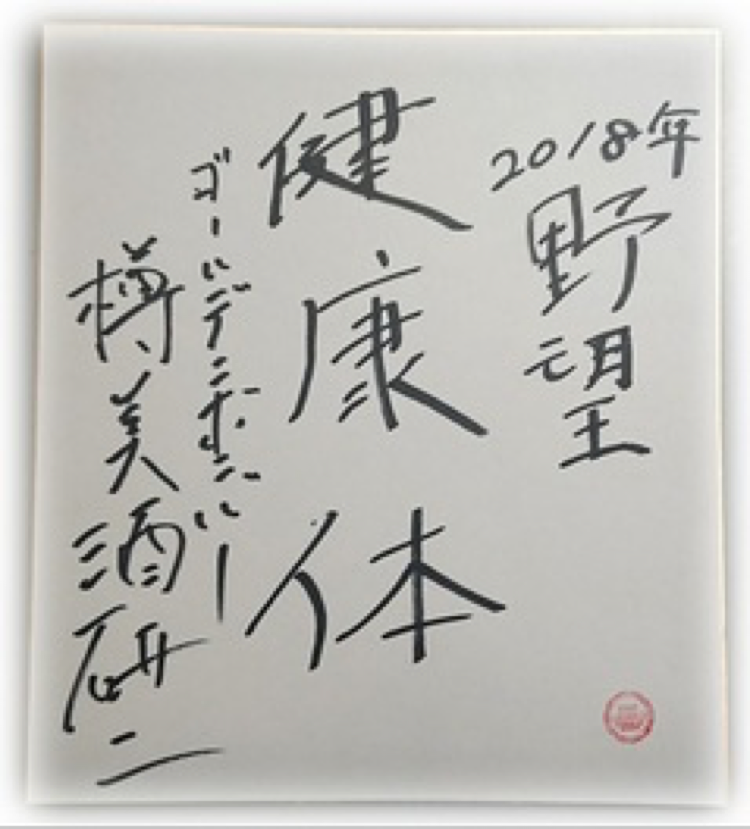 2018年
野望
健康体
ゴールデンボンバー
樽美酒研二